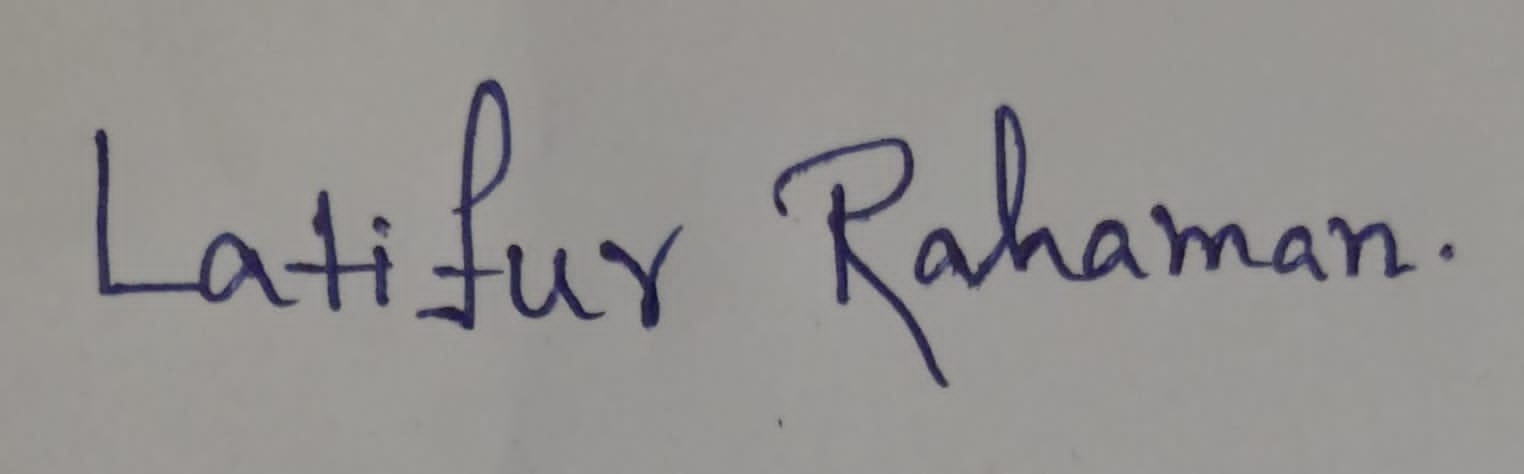 Latifur Rahaman.